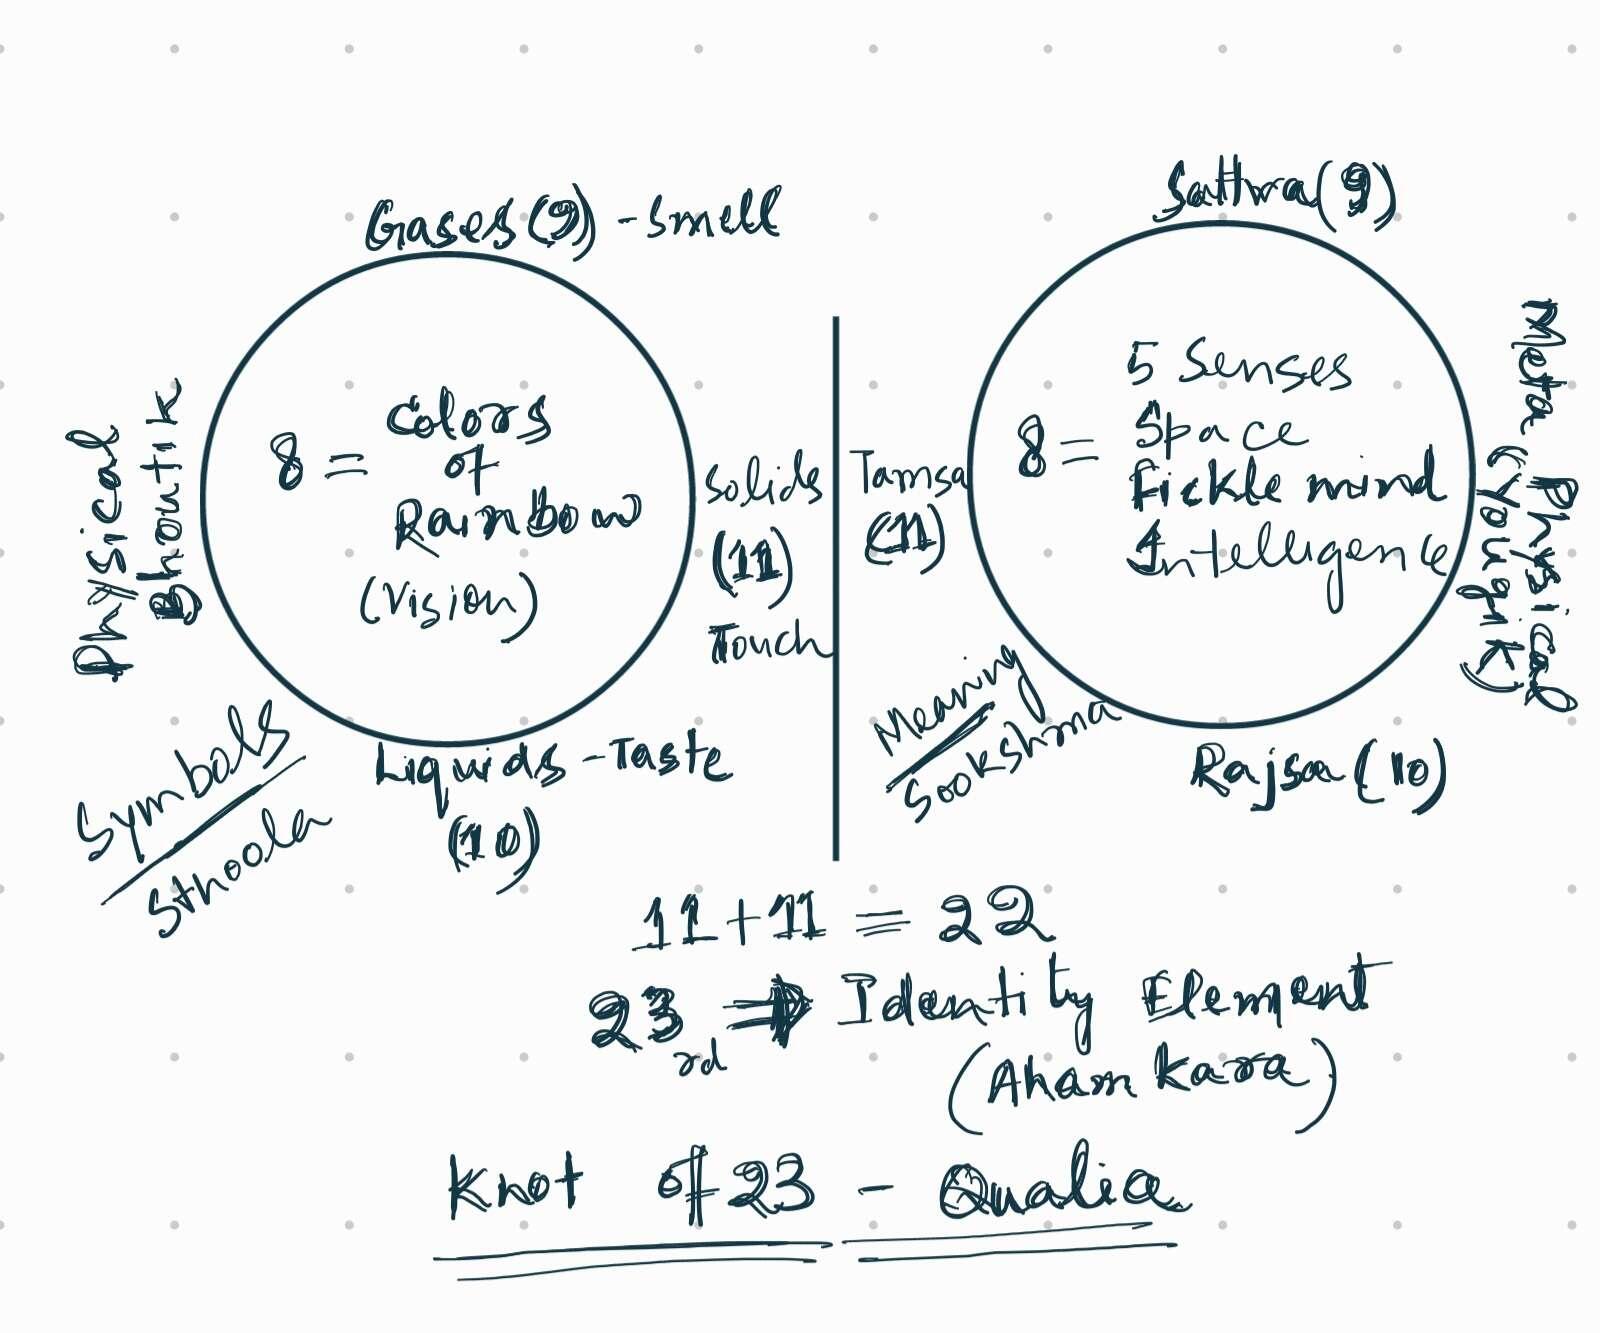 Gases (9) - Smell
Physical
Bhoutik
8 = Colors
of
Rainbow
(Vision)
Solids
(11)
Touch
Liquids - Taste
(10)
Symbols
Sthoola
Sattva (9)
Tamsa
(11)
8 = 5 Senses
Space
Fickle mind
Intelligence
Meta Physical
(Yougik)
Meaning
Sookshma
Rajsa (10)
11 + 11 = 22
23rd ⇒ Identity Element
(Aham kara)
Knot of 23 - Qualia